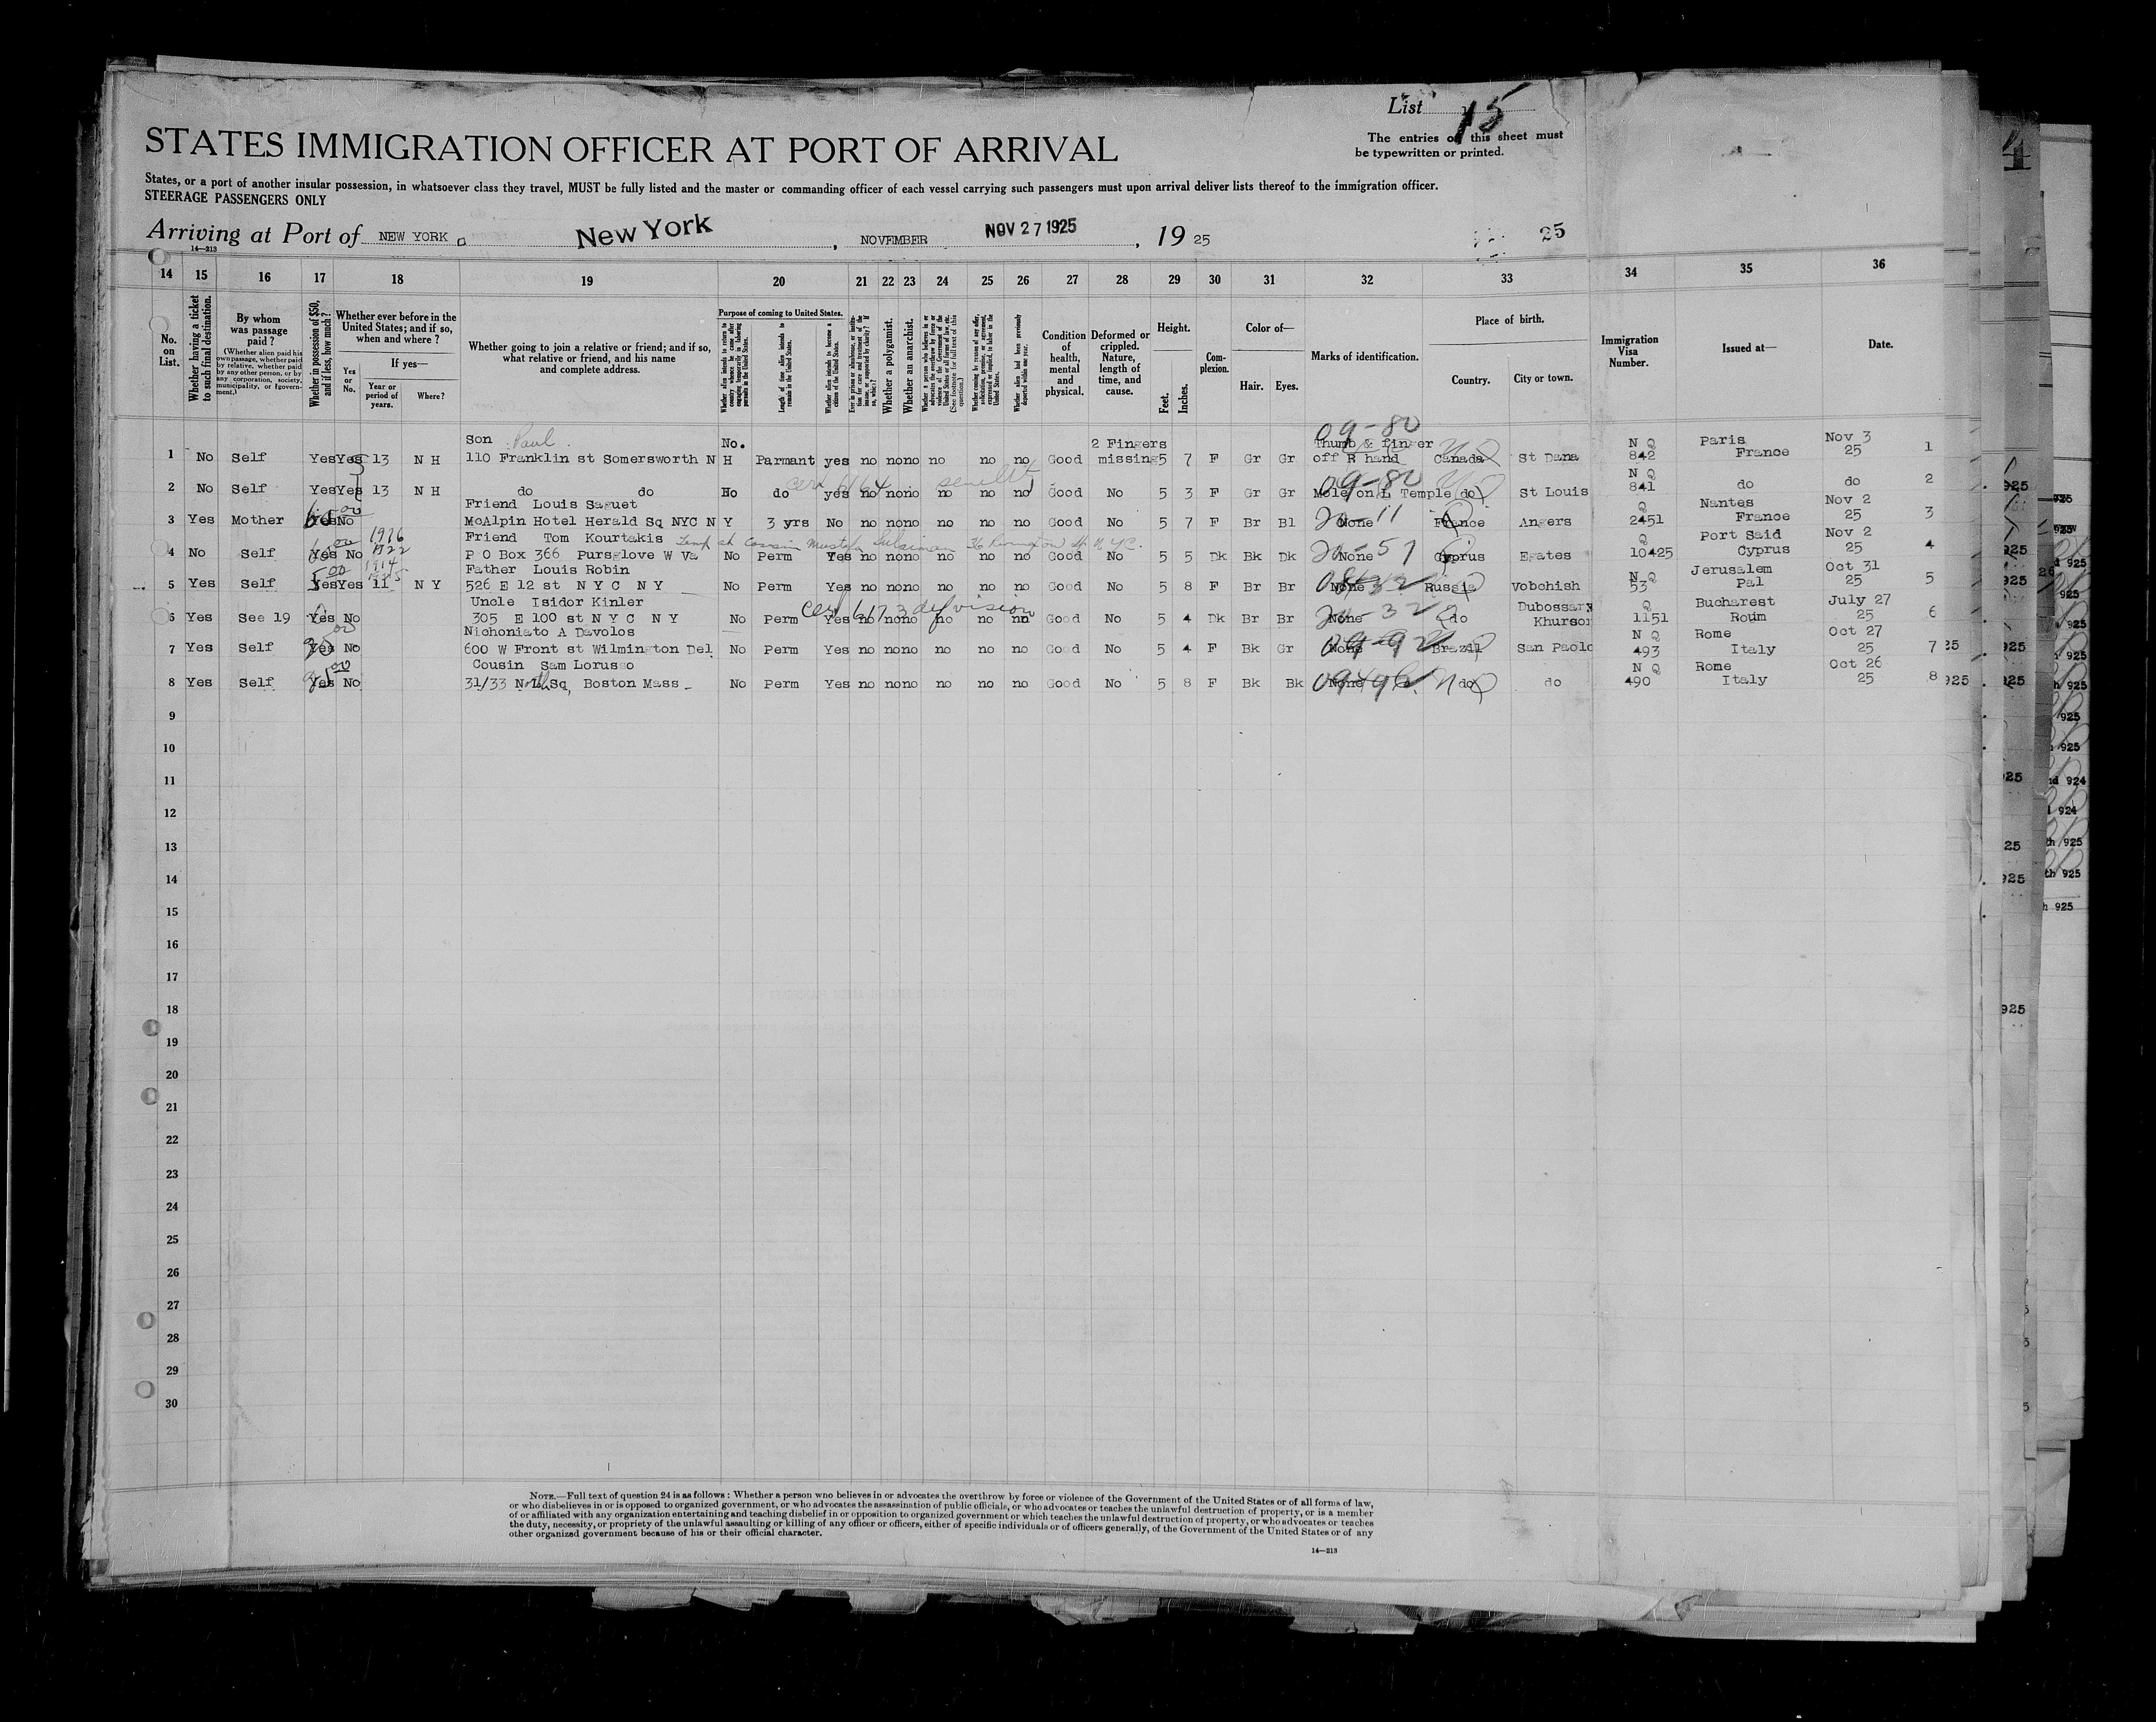 List 15
The entries of this sheet must
be typewritten or printed.
STATES IMMIGRATION OFFICER AT PORT OF ARRIVAL
States, or a port of another insular possession, in whatsoever class they travel, MUST be fully listed and the master or commanding officer of each vessel carrying such passengers must upon arrival deliver lists thereof to the immigration officer.
STEERAGE PASSENGERS ONLY
Arriving at Port of NEW YORK New York, NOVEMBER NOV 27 1925, 19 25 25
14—213
14 15 16 17 18 19 20 21 22 23 24 25 26 27 28 29 30 31 32 33 34 35 36
No. on List.
Whether having a ticket to such final destination.
By whom was passage paid?
(Whether alien paid his own passage, whether paid by relative, whether paid by any other person, or by any corporation, society, municipality, or government.)
Whether in possession of $50, and if less, how much?
Whether ever before in the United States; and if so, when and where?
If yes—
Yes or No.
Year or period of years.
Where?
Whether going to join a relative or friend; and if so, what relative or friend, and his name and complete address.
Purpose of coming to United States.
Length of time alien intends to remain in the United States.
Whether alien intends to become a citizen of the United States.
Whether a polygamist.
Whether an anarchist.
Condition of health, mental and physical.
Deformed or crippled. Nature, length of time, and cause.
Height.
Feet.
Inches.
Complexion.
Color of—
Hair.
Eyes.
Marks of identification.
Place of birth.
Country.
City or town.
Immigration Visa Number.
Issued at—
Date.
Son Paul. No. 2 Fingers 09-80 Thumb & finger N Q Paris Nov 3
1 No Self Yes Yes 13 N H 110 Franklin st Somersworth N H Parmant yes no no no no no no Good missing 5 7 F Gr Gr off R hand Canada St Dana 842 France 25 1
cert senility 09-80 N Q
2 No Self Yes Yes 13 N H do do No do yes no no no no no no Good No 5 3 F Gr Gr Mole on L Temple do St Louis 841 do do 2
Friend Louis Saguet Q Nantes Nov 2
3 Yes Mother Yes No McAlpin Hotel Herald Sq NYC N Y 3 yrs No no no no no no no Good No 5 7 F Br Bl None 20-11 France Angers 2451 France 25 3
Friend Tom Kourtakis Temp at Cousin Q Port Said Nov 2
4 No Self Yes No P O Box 366 Pursglove W Va No Perm Yes no no no no no no Good No 5 5 Dk Bk Dk None 20-57 Cyprus Egates 10425 Cyprus 25 4
Father Louis Robin N Q Jerusalem Oct 31
5 Yes Self Yes Yes 11 N Y 526 E 12 st N Y C N Y No Perm Yes no no no no no no Good No 5 8 F Br Br None 08-32 Russia Vobchish 53 Pal 25 5
Uncle Isidor Kinler cert 6173 def vision Dubossary Q Bucharest July 27
6 Yes See 19 Yes No 305 E 100 st N Y C N Y No Perm Yes no no no no no no Good No 5 4 Dk Br Br None 20-32 do Khurson 1151 Roum 25 6
Nichoniato A Davolos N Q Rome Oct 27
7 Yes Self Yes No 600 W Front st Wilmington Del No Perm Yes no no no no no no Good No 5 4 F Bk Gr None 09-92 Brazil San Paolo 493 Italy 25 7
Cousin Sam Lorusso N Q Rome Oct 26
8 Yes Self Yes No 31/33 North Sq, Boston Mass No Perm Yes no no no no no no Good No 5 8 F Bk Bk None do do 490 Italy 25 8
9
10
11
12
13
14
15
16
17
18
19
20
21
22
23
24
25
26
27
28
29
30
NOTE.—Full text of question 24 is as follows: Whether a person who believes in or advocates the overthrow by force or violence of the Government of the United States or of all forms of law,
or who disbelieves in or is opposed to organized government, or who advocates the assassination of public officials, or who advocates or teaches the unlawful destruction of property, or is a member
of or affiliated with any organization entertaining and teaching disbelief in or opposition to organized government or which teaches the unlawful destruction of property, or who advocates or teaches
the duty, necessity, or propriety of the unlawful assaulting or killing of any officer or officers, either of specific individuals or of officers generally, of the Government of the United States or of any
other organized government because of his or their official character.
14—213